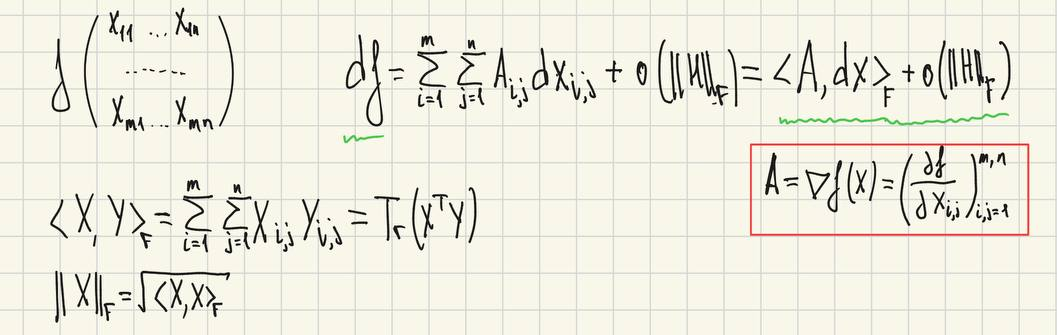 f ( X₁₁ ... X₁ₙ
------
Xₘ₁ ... Xₘₙ )
df = ∑_{i=1}^{m} ∑_{j=1}^{n} A_{i,j} dx_{i,j} + o(‖H‖_F) = <A, dx>_F + o(‖H‖_F)
A = ∇f(X) = (∂f/∂X_{i,j})_{i,j=1}^{m,n}
<X, Y>_F = ∑_{i=1}^{m} ∑_{j=1}^{n} X_{i,j} Y_{i,j} = Tr(X^T Y)
‖X‖_F = √<X, X>_F